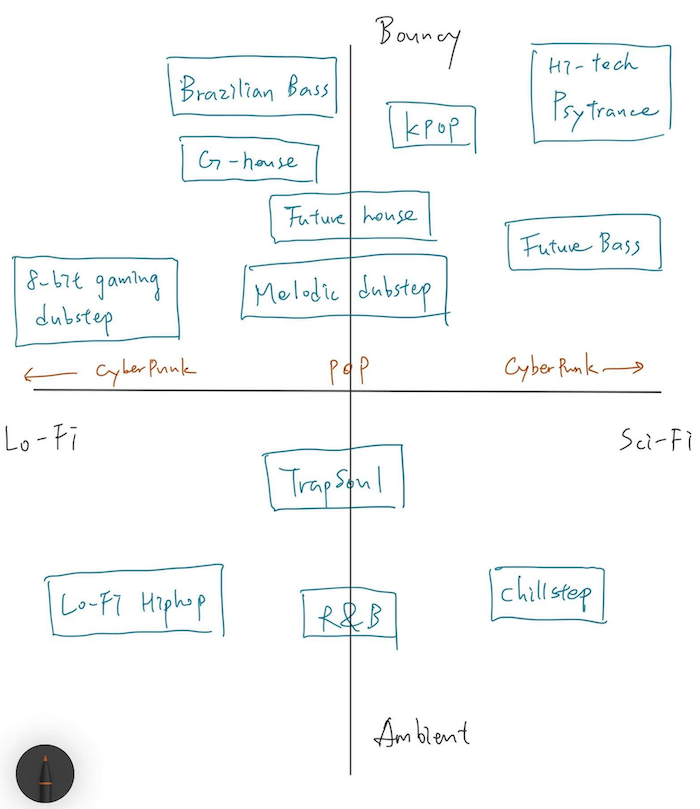 Bouncy
Brazilian Bass
Hi-tech
Psytrance
KPOP
G-house
Future house
Future Bass
8-bit gaming
dubstep
Melodic dubstep
← CyberPunk
POP
CyberPunk →
Lo-Fi
Sci-Fi
TrapSoul
Lo-Fi Hiphop
R&B
Chillstep
Ambient